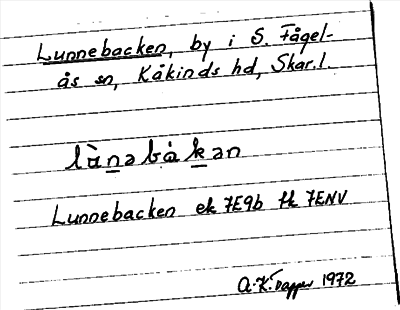 Lunnebacken, by i S. Fågel-
ås sn, Kåkinds hd, Skar.l.
lùnəbàkən
Lunnebacken ek 7E9b tk 7ENV
1972